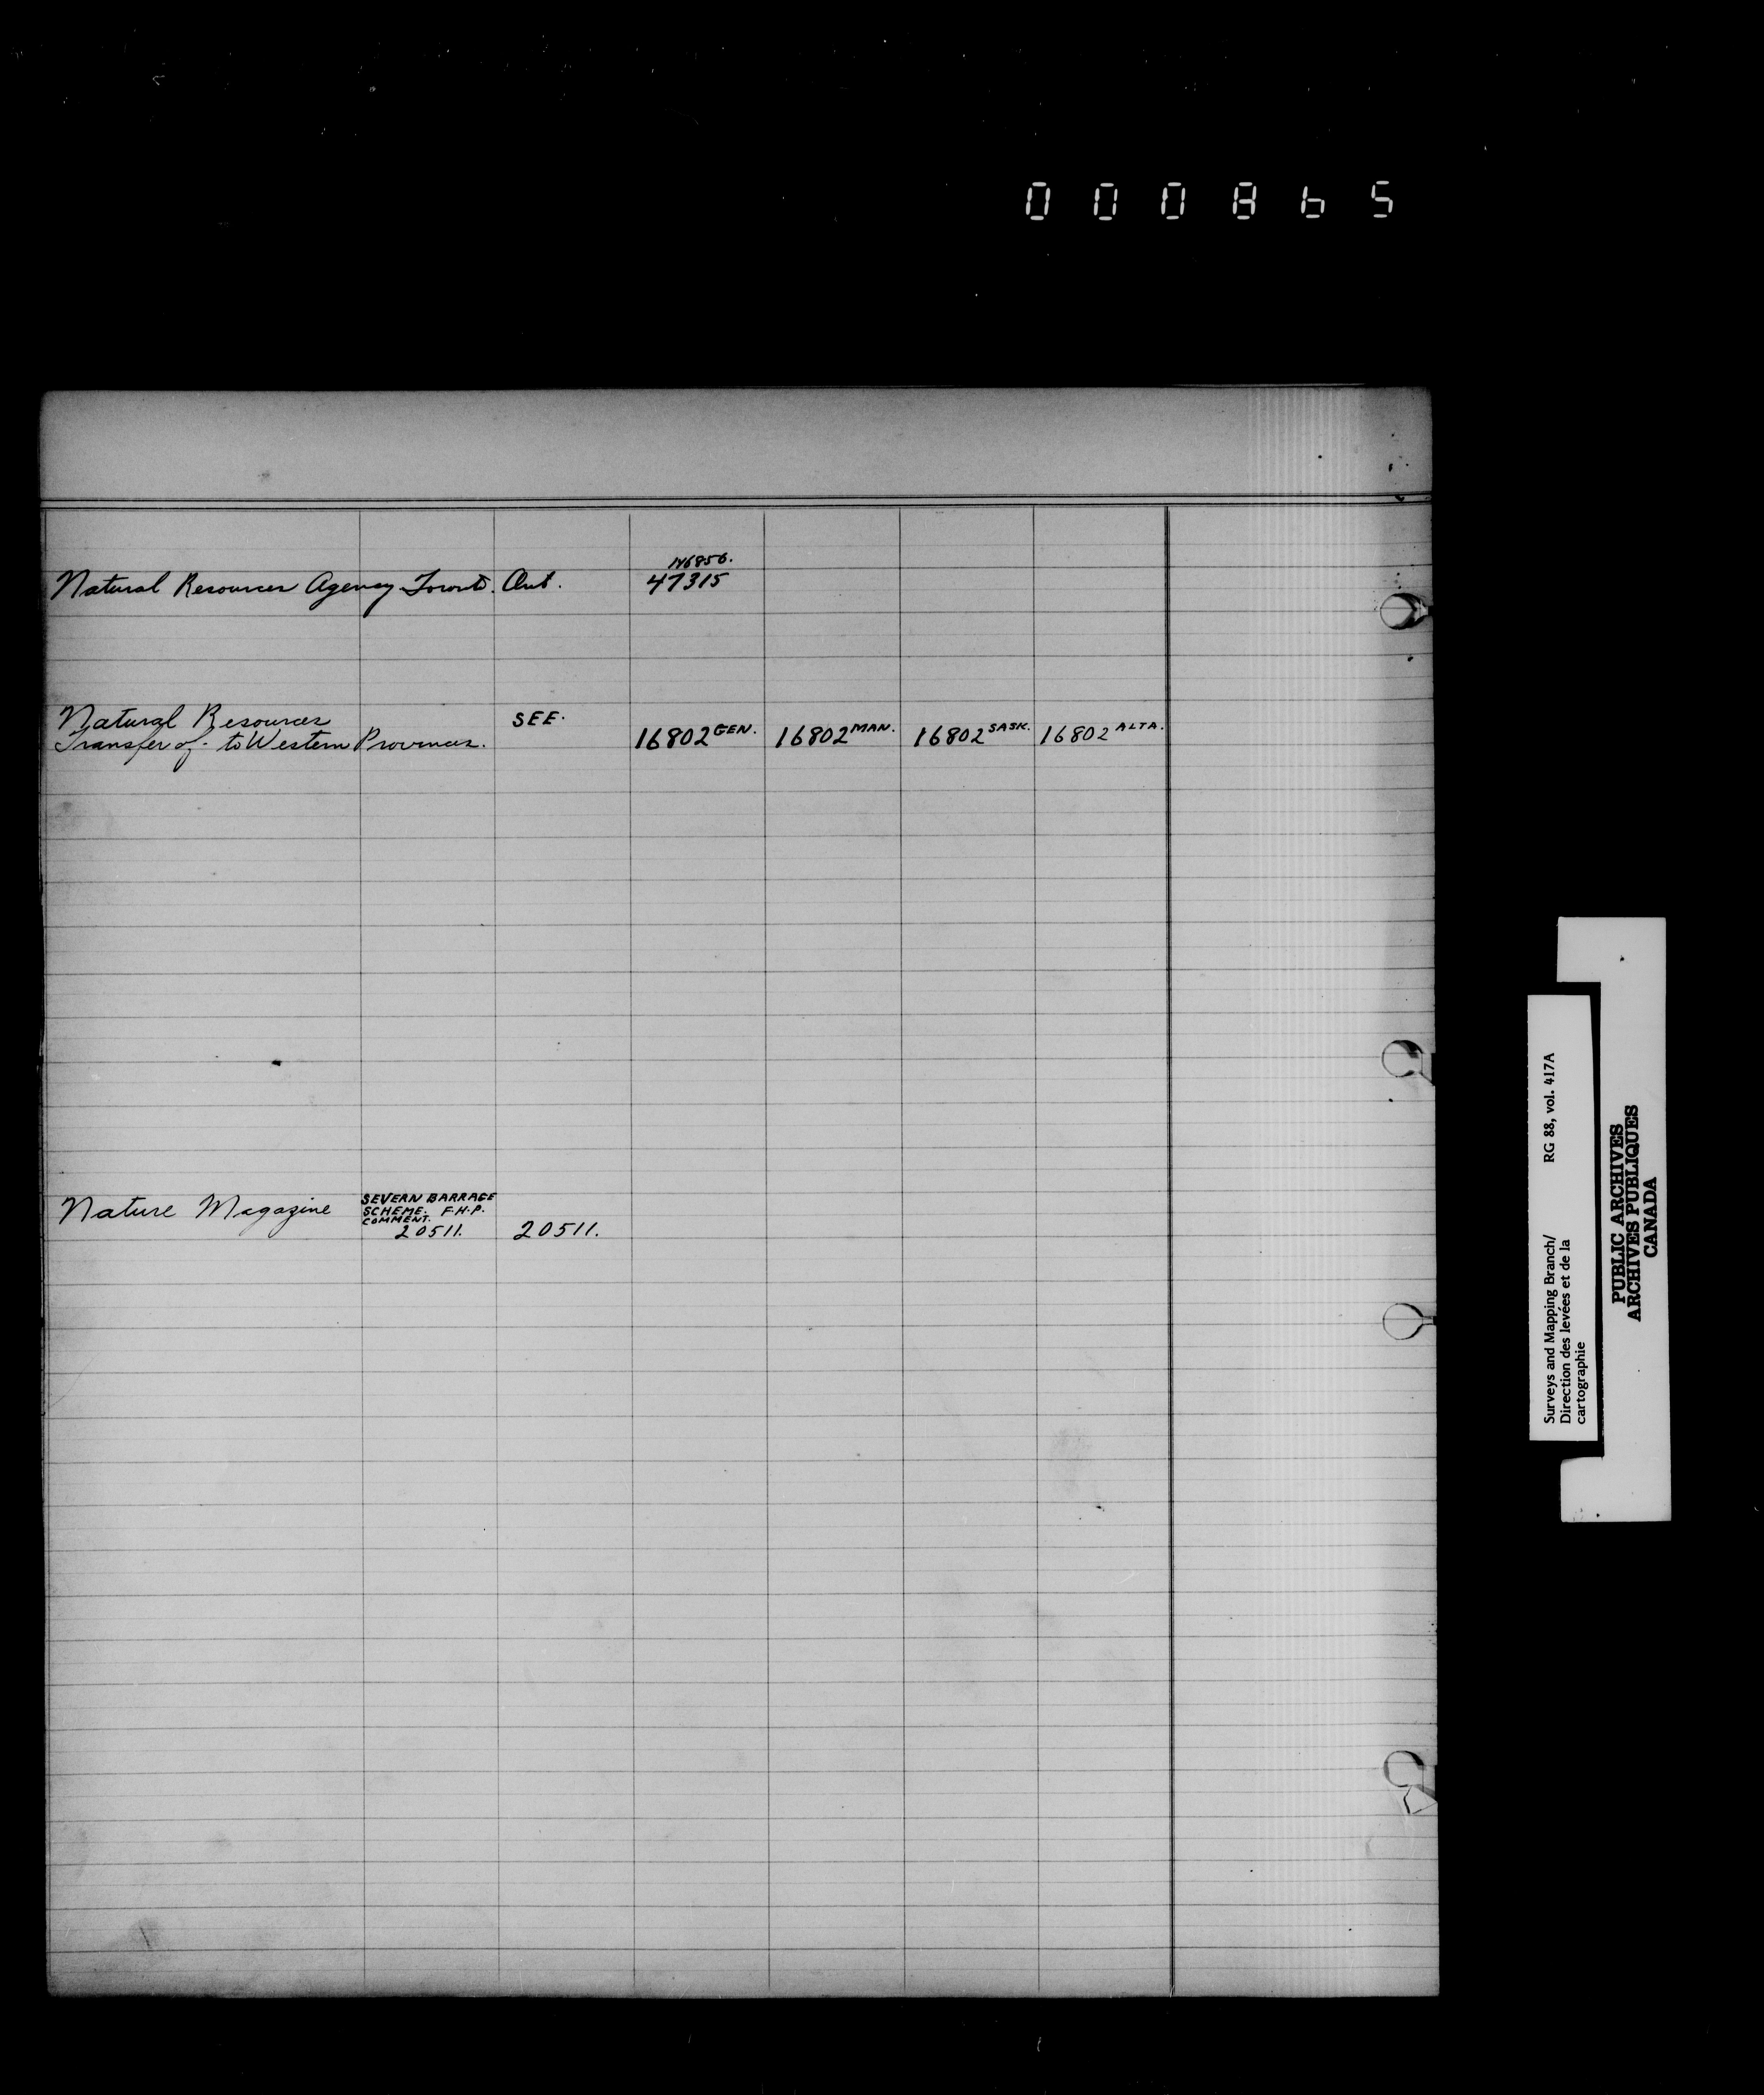 000865
146856.
Natural Resources Agency Toronto. Ont. 47315
Natural Resources SEE.
Transfer of - to Western Provinces. 16802 GEN. 16802 MAN. 16802 SASK. 16802 ALTA.
SEVERN BARRAGE
Nature Magazine SCHEME. F.H.P.
COMMENT.
20511. 20511.
Surveys and Mapping Branch/ RG 88, vol. 417A
Direction des levées et de la
cartographie
PUBLIC ARCHIVES
ARCHIVES PUBLIQUES
CANADA